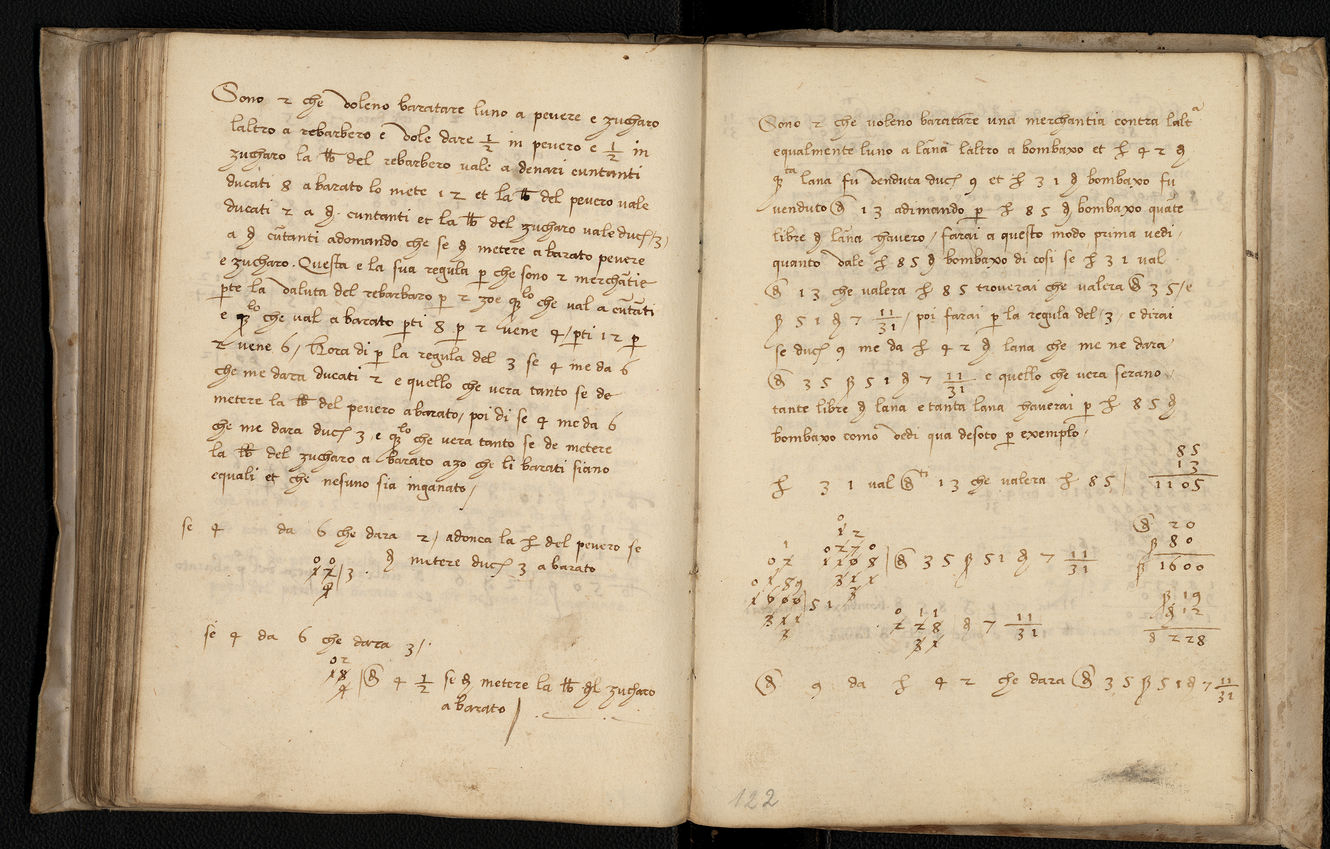 Sono 2 che voleno baratare luno a pevere e zucharo
laltro a rebarbero e vole dare 1/2 in pevero e 1/2 in
zucharo la ℔ del rebarbero vale a denari cuntanti
ducati 8 a barato lo mete 12 et la ℔ del pevero vale
ducati 2 a d. cuntanti et la ℔ del zucharo vale duc 3/
a d cūtanti adomando che se d metere a barato pevere
e zucharo. Questa e la sua regula p che sono 2 merchātie
pte la valuta del rebarbaro p 2 zoe q̄lo che val a cūtāti
e q̄lo che val a barato pti 8 p 2 vene 4/ pti 12 p
2 vene 6/ Hora di p la regula del 3 se 4 me da 6
che me dara ducati 2 e quello che vera tanto se de
metere la ℔ del pevero a barato/ poi di se 4 me da 6
che me dara duc 3 e q̄lo che vera tanto se de metere
la ℔ del zucharo a barato azo che li barati siano
equali et che nesuno sia inganato/
se 4 da 6 che dara 2/ adonca la ℔ del pevero se
d metere duc 3 a barato
0 0
1 2 / 3
4
se 4 da 6 che dara 3/
0 2
1 8 / d 4 1/2 se d metere la ℔ dl zucharo
4
a barato
Sono 2 che voleno baratare una merchantia contra laltᵃ
equalmente luno a lana laltro a bombaxo et ℔ 42 d
q̄ta lana fu venduta duc 9 et ℔ 31 d bombaxo fu
venduto d 13 adimando p ℔ 85 d bombaxo quāte
libre d lana havero/ farai a questo modo prima vedi/
quanto vale ℔ 85 d bombaxo di cosi se ℔ 31 val
d 13 che valera ℔ 85 troverai che valera d 35/ e
ß 51 d 7 11/31/ poi farai p la regula del 3 e dirai
se duc 9 me da ℔ 42 d lana che me ne dara
d 35 ß 51 d 7 11/31 e quello che vera serano/
tante libre d lana e tanta lana haverai p ℔ 85 d
bombaxo como vedi qua desoto p exemplo/
85
13
℔ 31 val dti 13 che valera ℔ 85/ 1105
0
1 2
0 2 7 0
1 1 0 8 / d 35 ß 51 d 7 11/31
3 1 1
3
d 20
ß 80
ß 1600
1
0 2
0 1 8 9
1 6 0 0 / 51
3 1 1
3
0 1 1
2 2 8 / d 7 11/31
3 1
ß 19
d 12
d 228
d 9 da ℔ 42 che dara d 35 ß 51 d 7 11/31
122